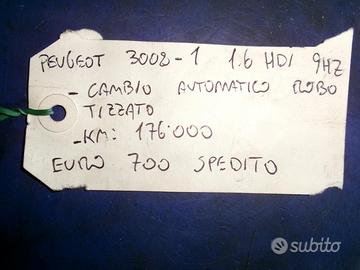 PEUGEOT 3008-1 1.6 HDI 9HZ
- CAMBIO AUTOMATICO ROBO
TIZZATO
- KM: 176.000
EURO 700 SPEDITO
subito